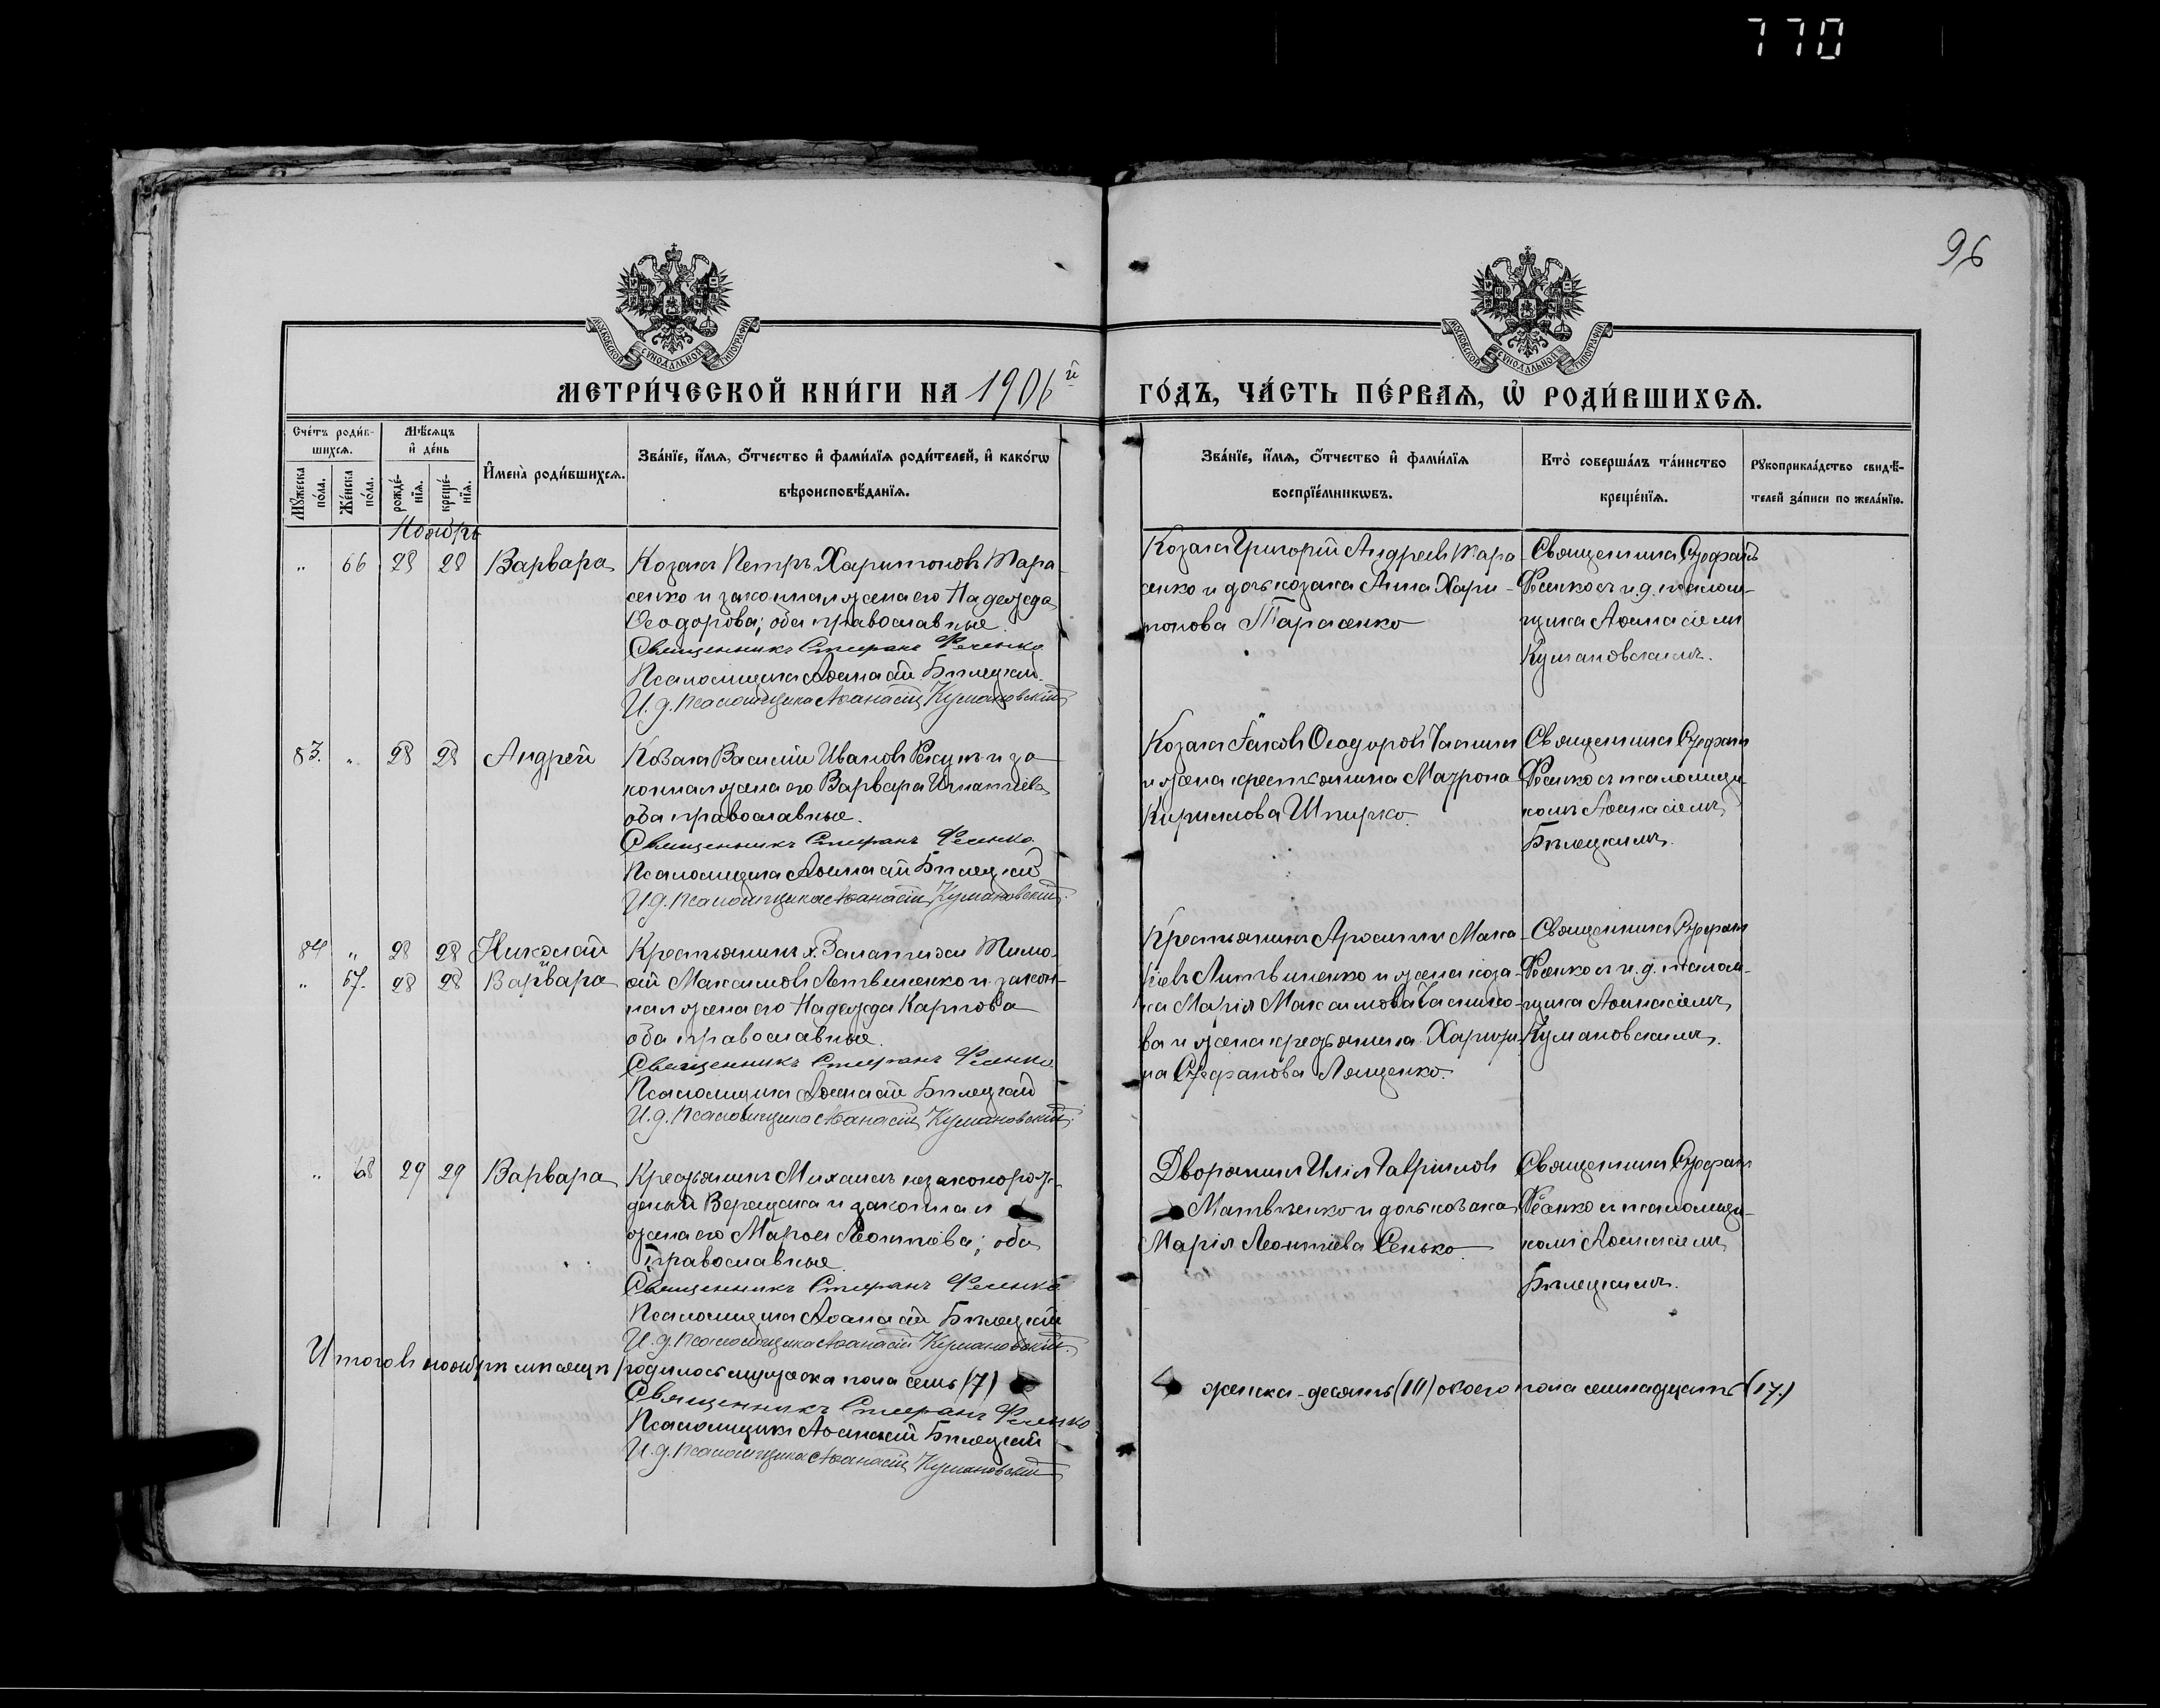 770
96
МОСКОВСКОЙ СУНОДАЛЬНОЙ ТИПОГРАФІИ
МОСКОВСКОЙ СУНОДАЛЬНОЙ ТИПОГРАФІИ
МЕТРИ́ЧЕСКОЙ КНИ́ГИ НА 1906й
ГО́ДЪ, ЧА́СТЬ ПЕ́РВАѦ, Ѡ҆ РОДИ́ВШИХСѦ.
Сче́тъ роди́в-
шихсѧ.
Мꙋ́жеска по́ла.
Же́нска по́ла.
Мѣ́сѧцъ
и҆ де́нь
рожде́-нїѧ.
креще́-нїѧ.
И҆мена̀ роди́вшихсѧ.
Зва́нїе, и҆́мѧ, ѻ҆́тчество и҆ фами́лїѧ роди́телей, и҆ како́гѡ
вѣроисповѣ́данїѧ.
Зва́нїе, и҆́мѧ, ѻ҆́тчество и҆ фами́лїѧ
воспрїе́мникѡвъ.
Кто̀ соверша́лъ та́инство
креще́нїѧ.
Рꙋкоприкла́дство свидѣ́-
телей за́писи по жела́нїю.
Ноябрь
" 66 28 28 Варвара
Козакъ Петръ Харитоновъ Тара-
сенко и законная жена его Надежда
Ѳеодорова; оба православные.
Священникъ Стефанъ Фесенко
Псаломщикъ Аѳанасій Бѣлецкій.
И. д. псаломщика Аѳанасій Кумановскій
Козакъ Григорій Андреевъ Тара-
сенко и дочь козака Анна Хари-
тонова Тарасенко
Священникъ Стефанъ
Фесенко съ и. д. псалом-
щика Аѳанасіемъ
Кумановскимъ.
83. " 28 28 Андрей
Козакъ Василій Ивановъ и за-
конная жена его Варвара Игнатіева
оба православные.
Священникъ Стефанъ Фесенко.
Псаломщикъ Аѳанасій Бѣлецкій
И. д. псаломщика Аѳанасій Кумановскій.
Козакъ Іаковъ Ѳеодоровъ
и жена крестьянина Матрона
Кириллова Шпирко.
Священникъ Стефанъ
Фесенко съ псаломщи-
комъ Аѳанасіемъ
Бѣлецкимъ.
84 " 28 28 Николай
и
" 67. 28 28 Варвара
Крестьянинъ х. Тимо-
ѳій Максимовъ Литвиненко и закон-
ная жена его Надежда Карпова
оба православные.
Священникъ Стефанъ Фесенко.
Псаломщикъ Аѳанасій Бѣлецкій
И. д. псаломщика Аѳанасій Кумановскій.
Крестьянинъ Мака-
ріевъ Литвиненко и жена коза-
ка Марія Максимова
ва и жена крестьянина Харити-
на Стефанова Лященко.
Священникъ Стефанъ
Фесенко съ и. д. псалом-
щика Аѳанасіемъ
Кумановскимъ.
" 68 29 29 Варвара
Крестьянинъ Михаилъ незаконорож-
денный Верещака и законная
жена его Марѳа Леонтіева; оба
православные.
Священникъ Стефанъ Фесенко
Псаломщикъ Аѳанасій Бѣлецкій
И. д. псаломщика Аѳанасій Кумановскій.
Дворянинъ Илія Гавриловъ
Матвѣенко и дочь козака
Марія Леонтіева Сенько.
Священникъ Стефанъ
Фесенко съ псаломщи-
комъ Аѳанасіемъ
Бѣлецкимъ.
Итого въ ноябрѣ мѣсяцѣ родилось мужеска пола семь (7)
женска - десять (10) обоего пола семнадцать (17.)
Священникъ Стефанъ Фесенко
Псаломщикъ Аѳанасій Бѣлецкій
И. д. псаломщика Аѳанасій Кумановскій